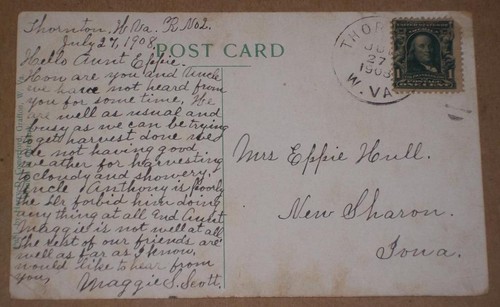 Thornton. W. Va. R. No 2.
July 27, 1908.
POST CARD
Hello Aunt Eppie.
How are you and Uncle
we have not heard from
you for some time, We
are well as usual and
busy as we can be trying
to get harvest done we
do not having good
weather for harvesting
to cloudy and showery.
Uncle Anthony is poorly
the Dr forbid him doing
any thing at all. And Aunt
Maggie is not well at all
the rest of our friends are
well as far as I know.
would like to hear from
you,
Maggie S. Scott.
Mrs Eppie Hull.
New Sharon.
Iowa.
THOR
27
1908
W. VA
1